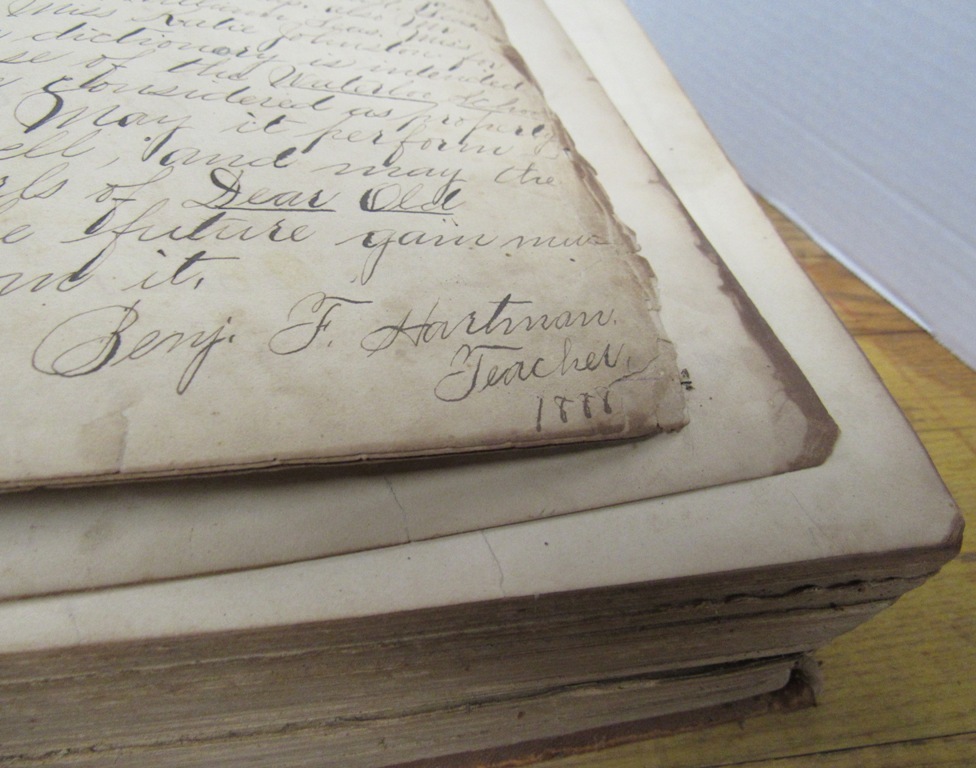 Miss Katie Johnston for
dictionary is intended
se of the Waterloo
Considered as property
May it perform
ell, and may the
ls of Dear Old
e future gain
it.
Benj. F. Hartman.
Teacher.
1888